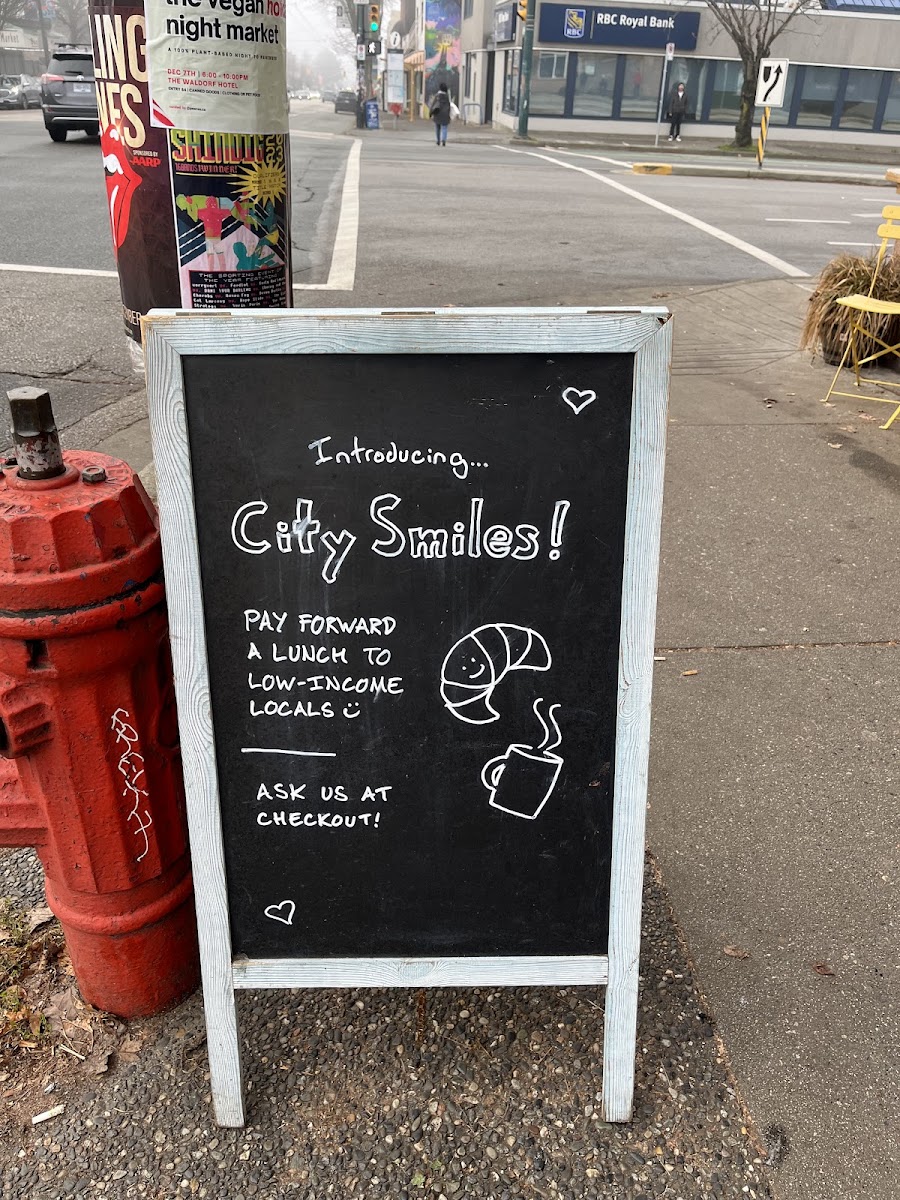 the vegan
night market
A 100% PLANT-BASED
DEC 7TH | 6:00 - 10:00PM
THE WALDORF HOTEL
ING
ES
SPONSORED BY
AARP
SHINDIG
THE SPORTING EVENT OF
THE YEAR FEATURING
RBC
RBC Royal Bank
Introducing...
City Smiles!
PAY FORWARD
A LUNCH TO
LOW-INCOME
LOCALS
ASK US AT
CHECKOUT!